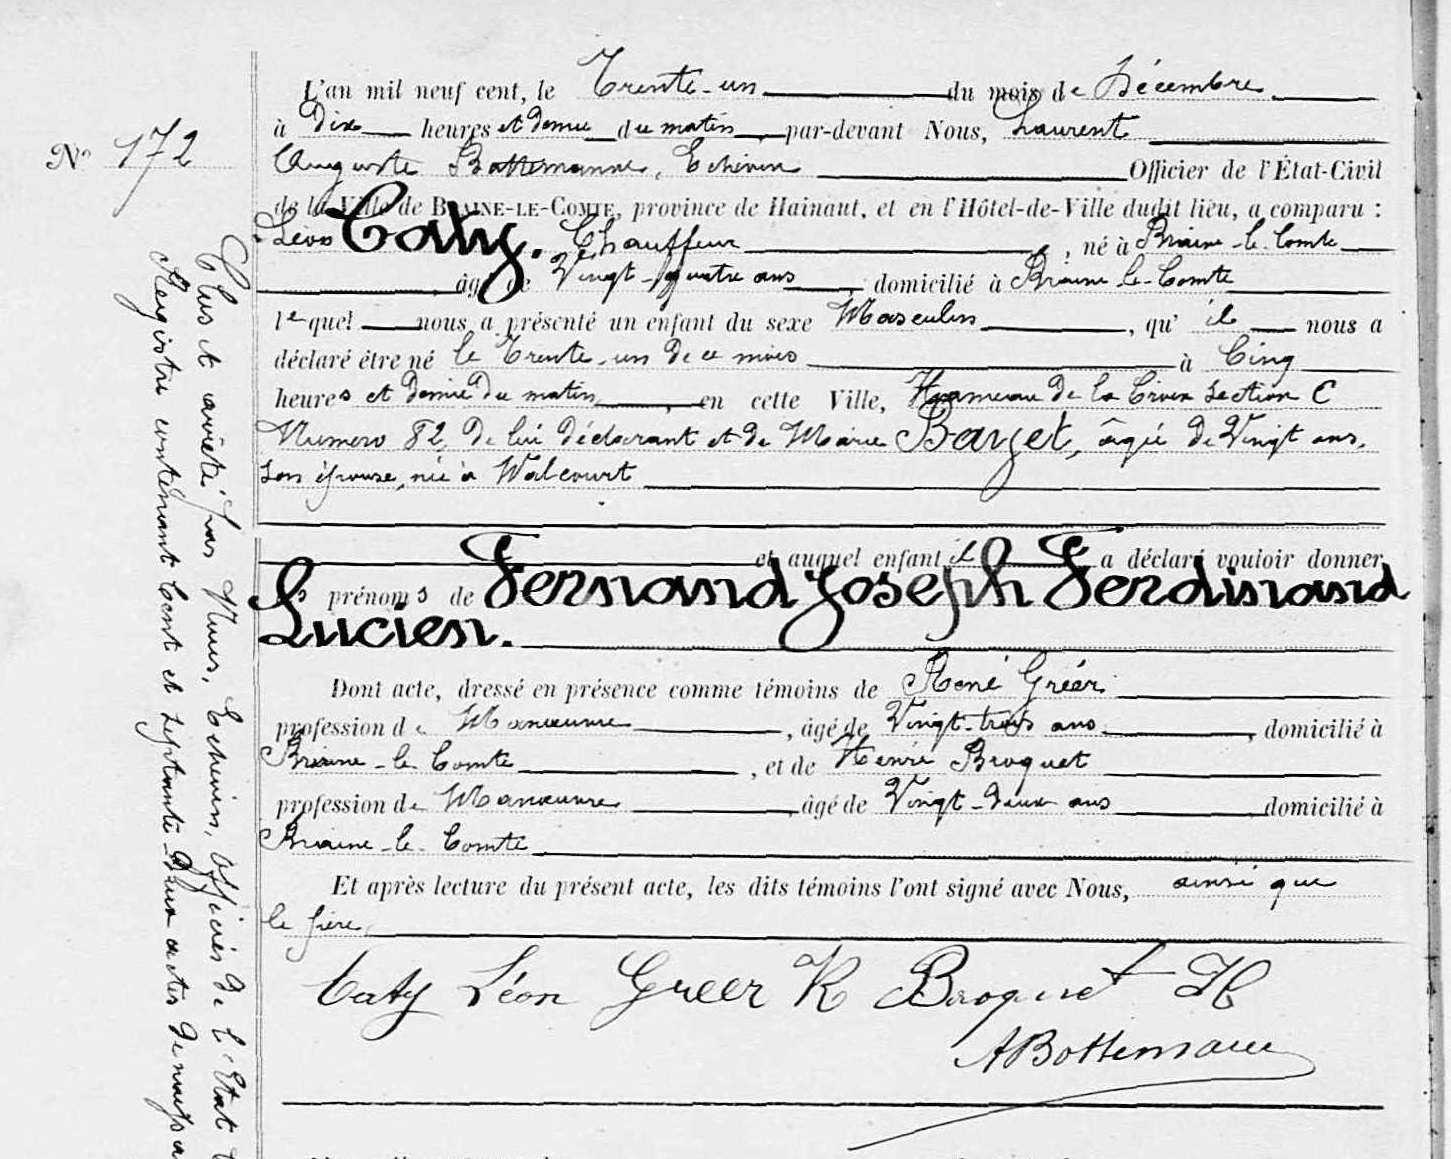 N° 172
L'an mil neuf cent, le Trente-un du mois de Décembre
à Dix heures et demie du matin, par-devant Nous, Laurent
Auguste Bottemanne, Echevin Officier de l'État-Civil
de la Ville de BRAINE-LE-COMTE, province de Hainaut, et en l'Hôtel-de-Ville dudit lieu, a comparu :
Léon Caty. Chauffeur, né à Braine-le-Comte
, âgé de Vingt-quatre ans, domicilié à Braine-le-Comte
lequel nous a présenté un enfant du sexe Masculin, qu'il nous a
déclaré être né le Trente-un de ce mois à Cinq
heures et demie du matin, en cette Ville, Hameau de la Croix section C
Numéro 82, de lui déclarant et de Marie Bayet, âgée de Vingt ans,
son épouse, née à Walcourt
et auquel enfant il a déclaré vouloir donner
les prénoms de Fernand Joseph Ferdinand
Lucien.
Dont acte, dressé en présence comme témoins de René Gréer
profession de Manœuvre, âgé de Vingt-trois ans, domicilié à
Braine-le-Comte, et de Henri Broquet
profession de Manœuvre, âgé de Vingt-deux ans domicilié à
Braine-le-Comte
Et après lecture du présent acte, les dits témoins l'ont signé avec Nous, ainsi que
le père.
Caty Léon Greer R Broquet H
ABottemanne
Clus et arrêté par Nous, Echevin, officier de l'Etat
Registre contenant Cent et septante-deux actes de